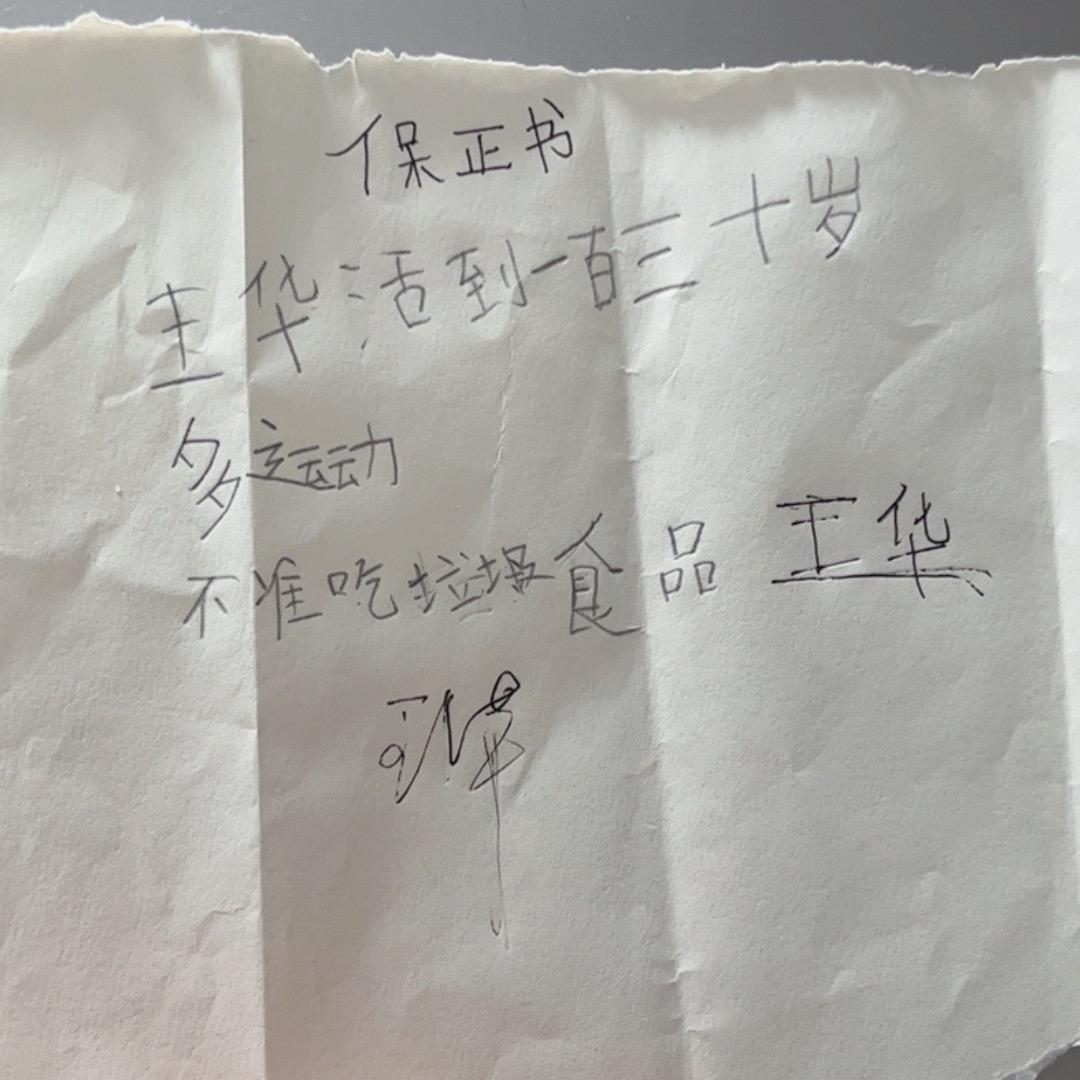 保正书
王华:活到一百三十岁
多运动
不准吃垃圾食品 王华
王华